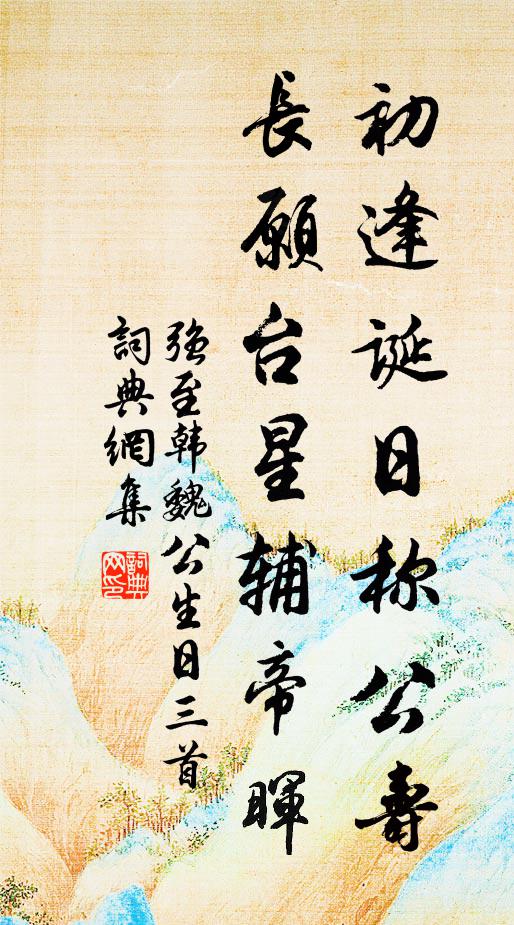 初逢誕日称公壽
長願台星辅帝暉
强至韩魏公生日三首
詞典網集
詞典
网印